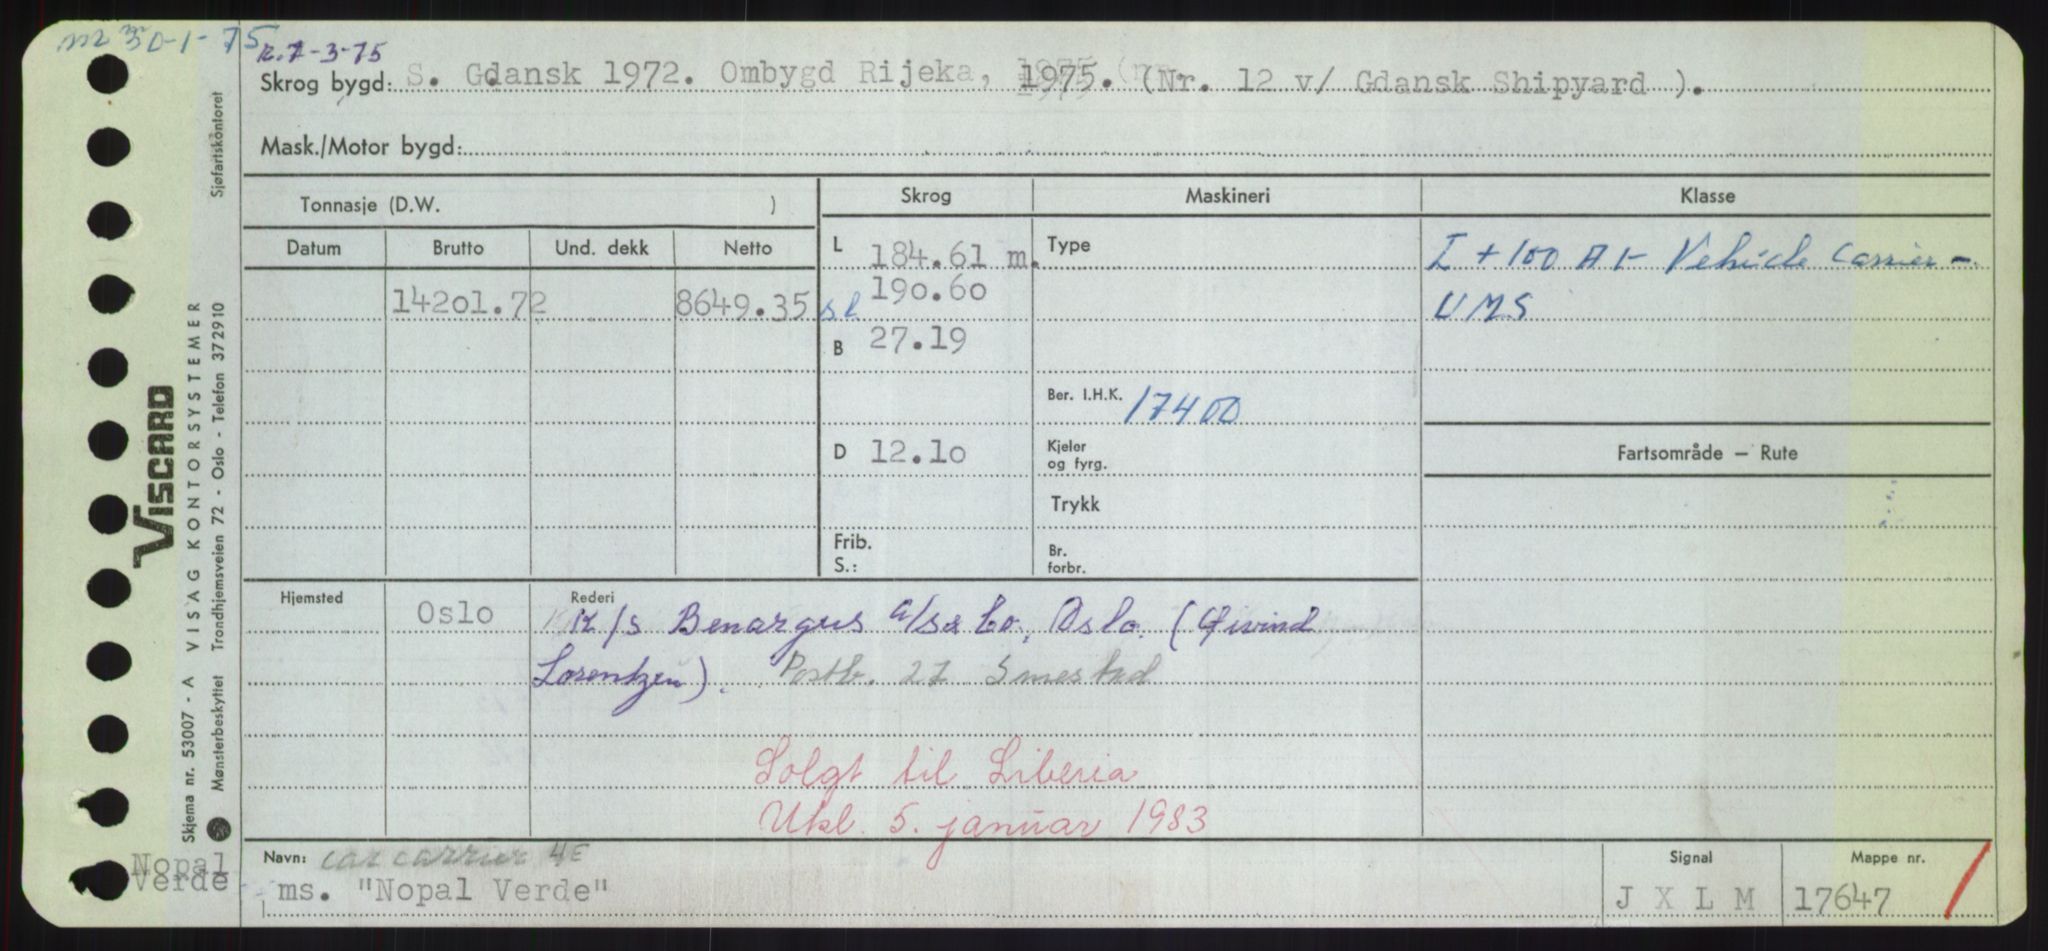 m 30-1-75
K.7-3-75
Skrog bygd: S. Gdansk 1972. Ombygd Rijeka, 1975. (Nr. 12 v/ Gdansk Shipyard ).
Mask./Motor bygd:
Tonnasje (D.W. )
Skrog
Maskineri
Klasse
Datum
Brutto
Und. dekk
Netto
14201.72
8649.35
L 184.61 m.
sl 190.60
B 27.19
D 12.10
Frib.
S.:
Type
Ber. I.H.K. 17400
Kjeler
og fyrg.
Trykk
Br.
forbr.
I + 100 A 1 - Vehicle Carrier -
UMS
Fartsområde — Rute
Hjemsted
Oslo
Rederi
K/S Benargus A/S & Co, Oslo. (Øivind
Lorentzen). Postb. 27 Smestad
Solgt til Liberia
Utkl. 5. januar 1983
Navn: car carrier 4E
ms. "Nopal Verde"
Signal
J X L M
Mappe nr.
17647
Nopal
Verde
VISCARD
Skjema nr. 53007 - A VISAG KONTORSYSTEMER
Mønsterbeskyttet Trondhjemsveien 72 - Oslo - Telefon 372910
Sjøfartskontoret